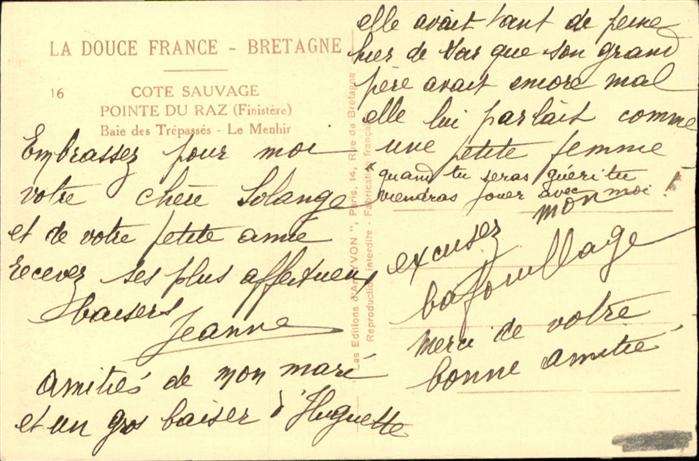 LA DOUCE FRANCE - BRETAGNE
16
COTE SAUVAGE
POINTE DU RAZ (Finistère)
Baie des Trépassés - Le Menhir
Embrassez pour moi
votre chère Solange
et de votre petite amie
recevez ses plus affectueux
baisers
Jeanne
amitiés de mon mari
et un gros baiser d'Huguette
Les Editions d'Art "YVON", Paris, 14, Rue de Bretagne
Reproduction Interdite - Fabrication Française
elle avait tant de peine
hier de voir que son grand
père avait encore mal
elle lui parlait comme
une petite femme
quand tu seras guéri tu
viendras jouer avec moi !
excusez mon
bafouillage
Merci de votre
bonne amitié